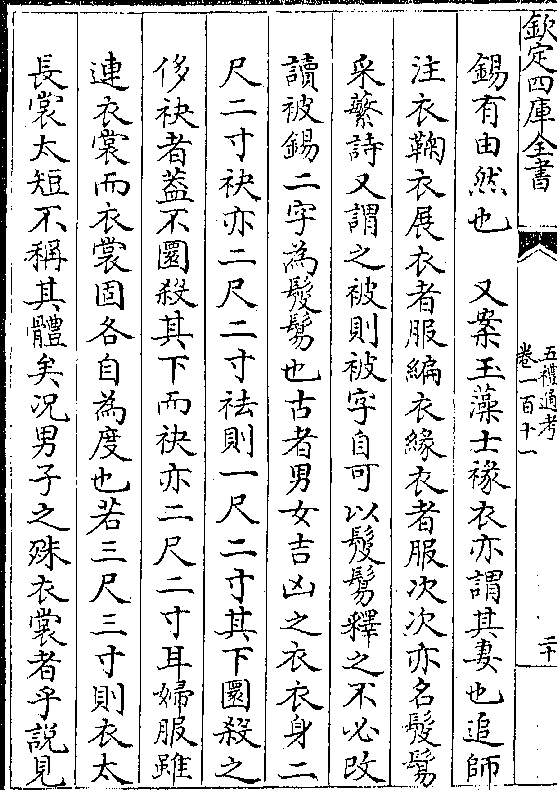 欽定四庫全書
五禮通考
卷一百十一
二十
錫有由然也　又案玉藻士褖衣亦謂其妻也追師
注衣鞠衣展衣者服編衣緣衣者服次次亦名髲髢
采蘩詩又謂之被則被字自可以髲髢釋之不必改
讀被錫二字為髲髢也古者男女吉凶之衣衣身二
尺二寸袂亦二尺二寸袪則一尺二寸其下圜殺之
侈袂者葢不圜殺其下而袂亦二尺二寸耳婦服雖
連衣裳而衣裳固各自為度也若三尺三寸則衣太
長裳太短不稱其體矣况男子之殊衣裳者乎説見